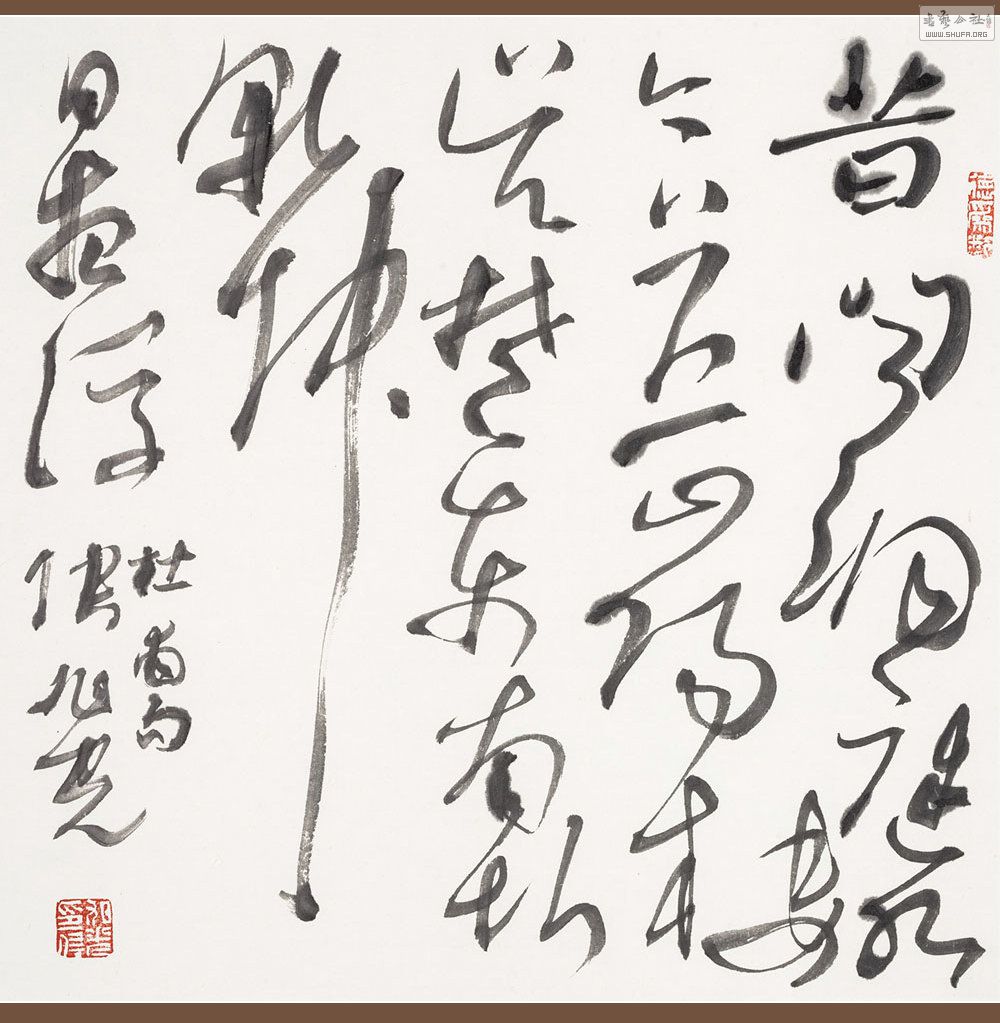 昔聞洞庭水
今上岳陽樓
吳楚東南坼
乾坤
日夜浮
杜甫句
張旭光
書藝公社
WWW.SHUFA.ORG